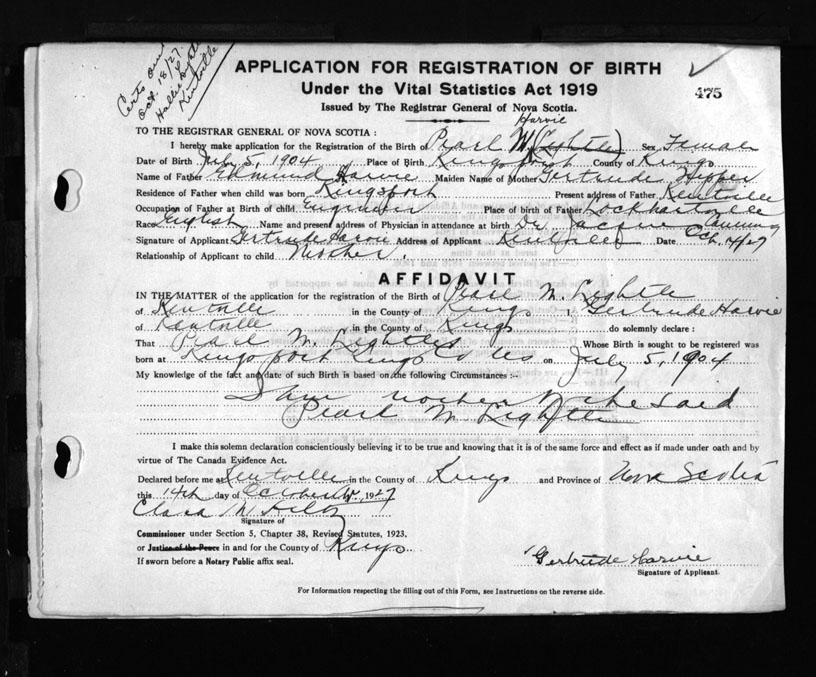 Certs
Oct. 18/27
Hallie
Kentville
APPLICATION FOR REGISTRATION OF BIRTH
Under the Vital Statistics Act 1919
475
Issued by The Registrar General of Nova Scotia.
Harvie
TO THE REGISTRAR GENERAL OF NOVA SCOTIA :
I hereby make application for the Registration of the Birth of Pearl M. (Lightle) Sex Female
Date of Birth July 5, 1904 Place of Birth Kingsport County of Kings
Name of Father Edmund Harvie Maiden Name of Mother Gertrude
Residence of Father when child was born Kingsport Present address of Father Kentville
Occupation of Father at Birth of child Engineer Place of birth of Father Lockhartville
Race English Name and present address of Physician in attendance at birth Dr. Canning
Signature of Applicant Gertrude Harvie Address of Applicant Kentville Date Oct. 14/27
Relationship of Applicant to child Mother.
AFFIDAVIT
IN THE MATTER of the application for the registration of the Birth of Pearl M. Lightle
of Kentville in the County of Kings I Gertrude Harvie
of Kentville in the County of Kings do solemnly declare :
That Pearl M. Lightle Whose Birth is sought to be registered was
born at Kingsport Kings Co NS on July 5, 1904
My knowledge of the fact and date of such Birth is based on the following Circumstances :-
I am mother of the said
Pearl M Lightle
I make this solemn declaration conscientiously believing it to be true and knowing that it is of the same force and effect as if made under oath and by
virtue of The Canada Evidence Act.
Declared before me at Kentville in the County of Kings and Province of Nova Scotia
this 14th day of October A.D. 1927
Clara M
Signature of
Commissioner under Section 5, Chapter 38, Revised Statutes, 1923,
or Justice of the Peace in and for the County of Kings
If sworn before a Notary Public affix seal.
Gertrude Harvie
Signature of Applicant.
For Information respecting the filling out of this Form, see Instructions on the reverse side.